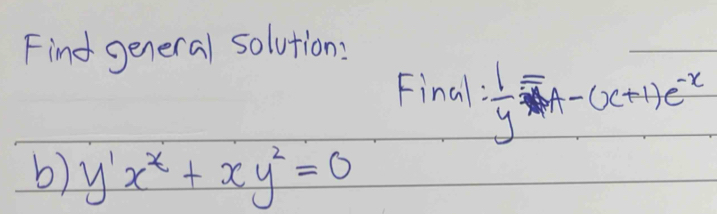 Find general solution:
Final: 1/y = A - (x+1)e^-x
b) y' x^x + xy^2 = 0